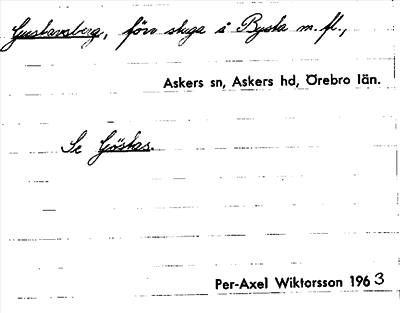 Gustavsberg, förr stuga å Bysta m.fl.,
Askers sn, Askers hd, Örebro län.
Se Göstas.
Per-Axel Wiktorsson 1963